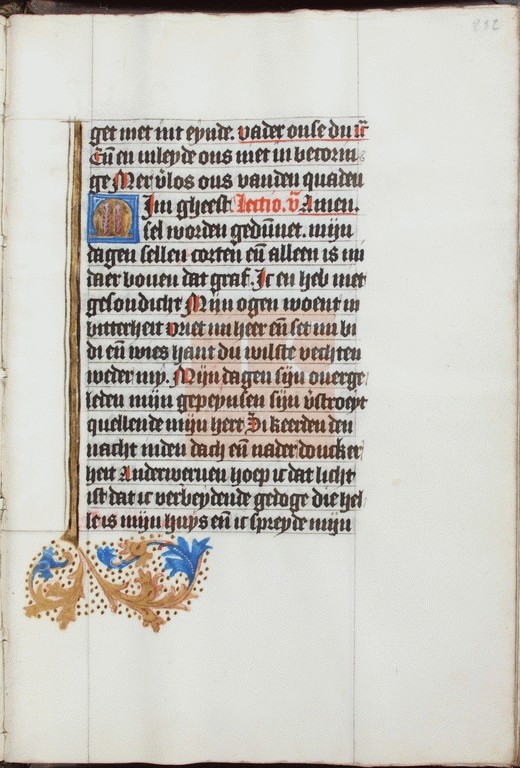 212
get met int eynde. vader onse du ić
Eñ en inleyde ons met in becorin
ge Mer v̄los ons vanden quaden
Min gheest Lectio. v̄. Amen.
sel worden geduñet. mijn
dagen sellen corten eñ alleen is mi
daer bouen dat graf. Ic en heb niet
gesondicht Mijn ogen woent in
bitterheit Vriet mi heer eñ set mi bi
di eñ wies hant du wilste vechten
weder my. Mijn dagen sijn ouerge
leden mijn gepeynsen sijn v̄stroeyt
quellende mijn hert Si keerden den
nacht inden dach eñ nader doncker
heit Anderweruen hoep ic dat licht
ist dat ic verbeydende gedoge die hel
le is mijn huys eñ ic spreyde mijn